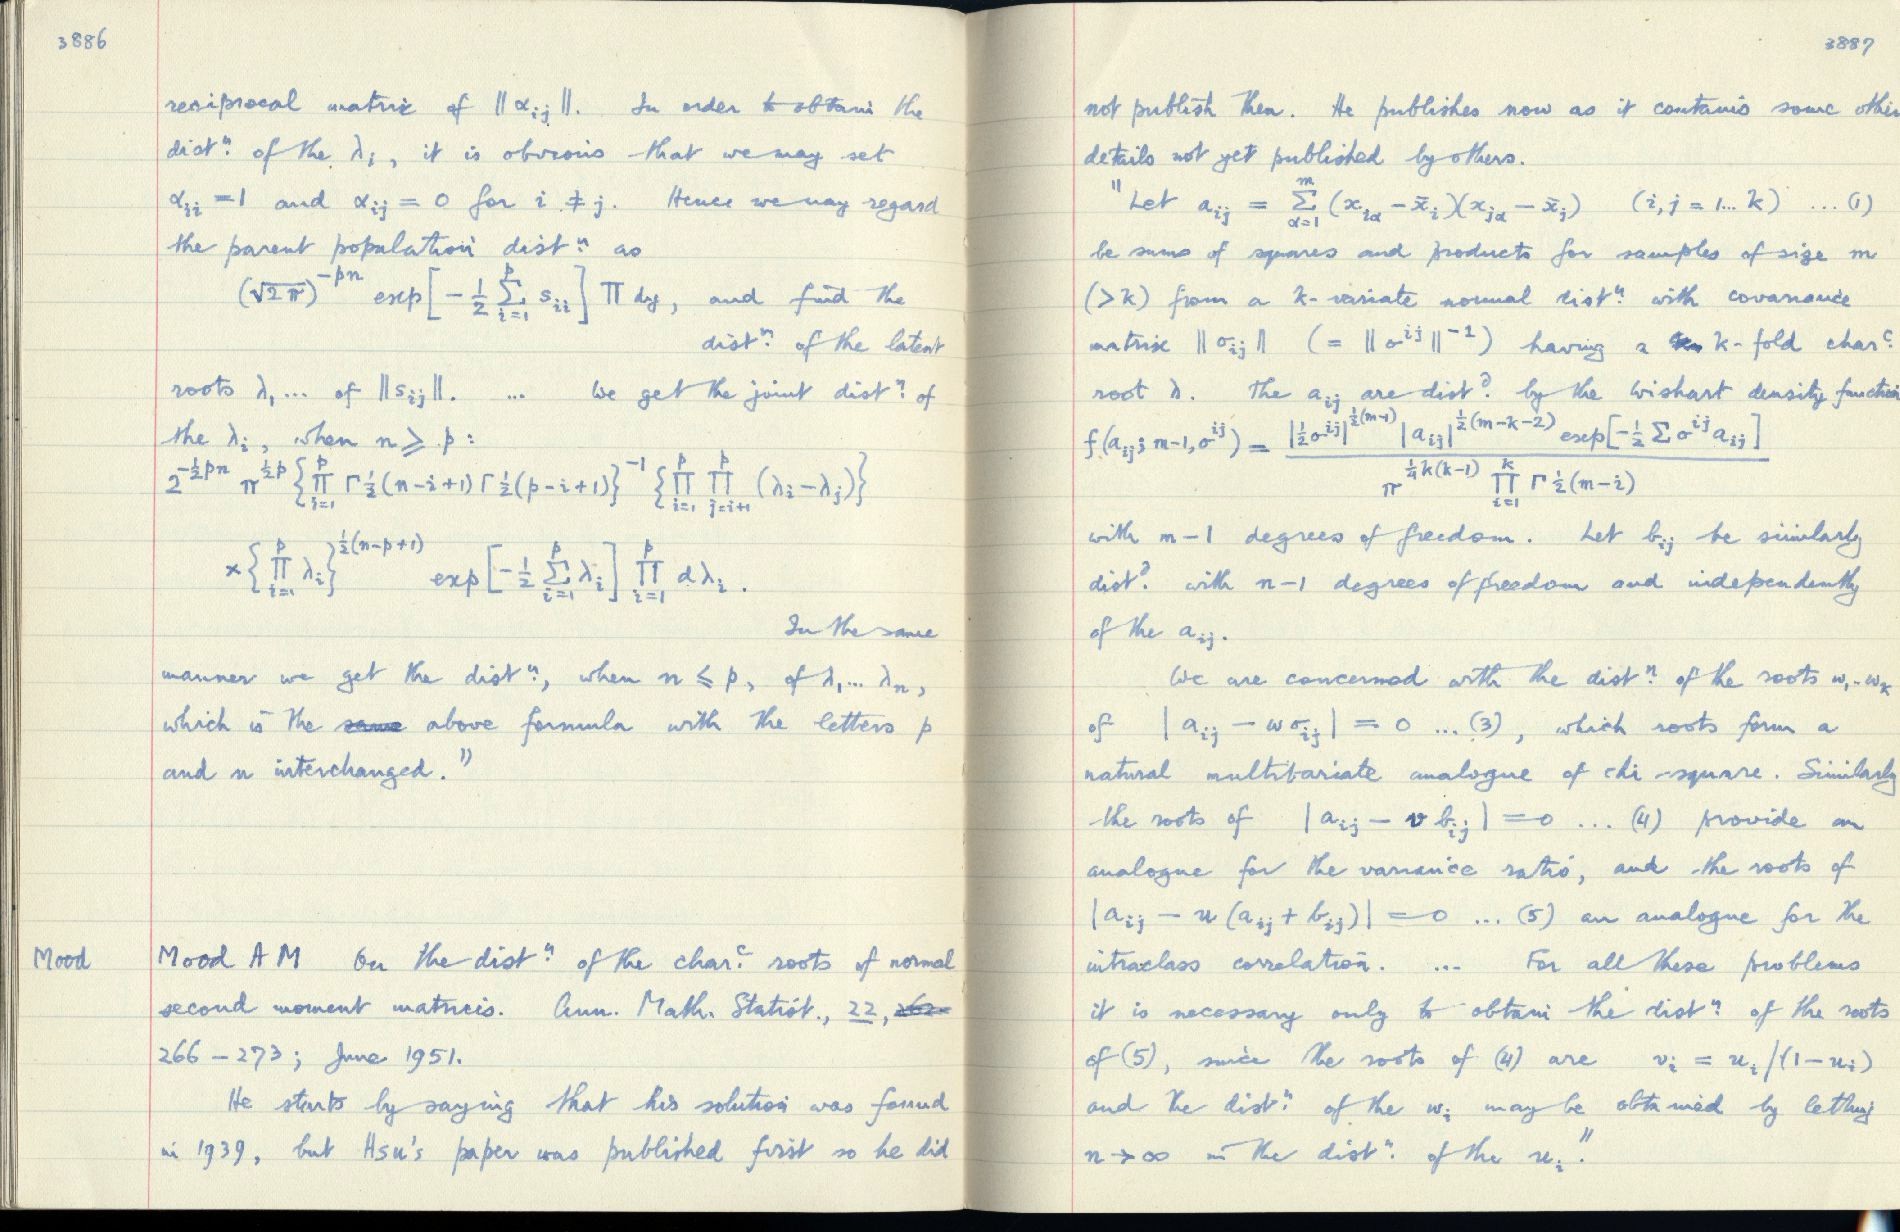 3886
reciprocal matrix of ‖α_ij‖. In order to obtain the
distⁿ. of the λ_i, it is obvious that we may set
α_ii = 1 and α_ij = 0 for i ≠ j. Hence we may regard
the parent population distⁿ. as
(√2π)^{-pn} exp[-½ Σ_{i=1}^{p} s_ii] Π dy, and find the
distⁿ. of the latent
roots λ₁ ... of ‖s_ij‖. ... We get the joint distⁿ. of
the λ_i, when n ⩾ p:
2^{-½pn} π^{½p} {Π_{i=1}^{p} Γ½(n-i+1) Γ½(p-i+1)}^{-1} {Π_{i=1}^{p} Π_{j=i+1}^{p} (λ_i - λ_j)}
× {Π_{i=1}^{p} λ_i}^{½(n-p+1)} exp[-½ Σ_{i=1}^{p} λ_i] Π_{i=1}^{p} dλ_i.
In the same
manner we get the distⁿ., when n ⩽ p, of λ₁ ... λ_n,
which is the same above formula with the letters p
and n interchanged."
Mood
Mood A M On the distⁿ. of the charᶜ. roots of normal
second moment matrices. Ann. Math. Statist., 22, 262-
266 – 273; June 1951.
He starts by saying that his solution was found
in 1939, but Hsu's paper was published first so he did
3887
not publish then. He publishes now as it contains some other
details not yet published by others.
"Let a_ij = Σ_{α=1}^{m} (x_iα - x̄_i)(x_jα - x̄_j) (i, j = 1... k) ... (1)
be sums of squares and products for samples of size m
(>k) from a k-variate normal distⁿ. with covariance
matrix ‖σ_ij‖ (= ‖σ^{ij}‖^{-1}) having a k-fold charᶜ.
root λ. The a_ij are distᵈ. by the Wishart density function
f(a_ij; m-1, σ^{ij}) = |½σ^{ij}|^{½(m-1)} |a_ij|^{½(m-k-2)} exp[-½ Σ σ^{ij} a_ij]
π^{¼k(k-1)} Π_{i=1}^{k} Γ½(m-i)
with m-1 degrees of freedom. Let b_ij be similarly
distᵈ. with n-1 degrees of freedom and independently
of the a_ij.
We are concerned with the distⁿ. of the roots w₁..w_k
of |a_ij - wσ_ij| = 0 ... (3), which roots form a
natural multivariate analogue of chi-square. Similarly
the roots of |a_ij - v b_ij| = 0 ... (4) provide an
analogue for the variance ratio, and the roots of
|a_ij - u(a_ij + b_ij)| = 0 ... (5) an analogue for the
intraclass correlation. ... For all these problems
it is necessary only to obtain the distⁿ. of the roots
of (5), since the roots of (4) are v_i = u_i/(1-u_i)
and the distⁿ. of the w_i may be obtained by letting
n → ∞ in the distⁿ. of the u_i."